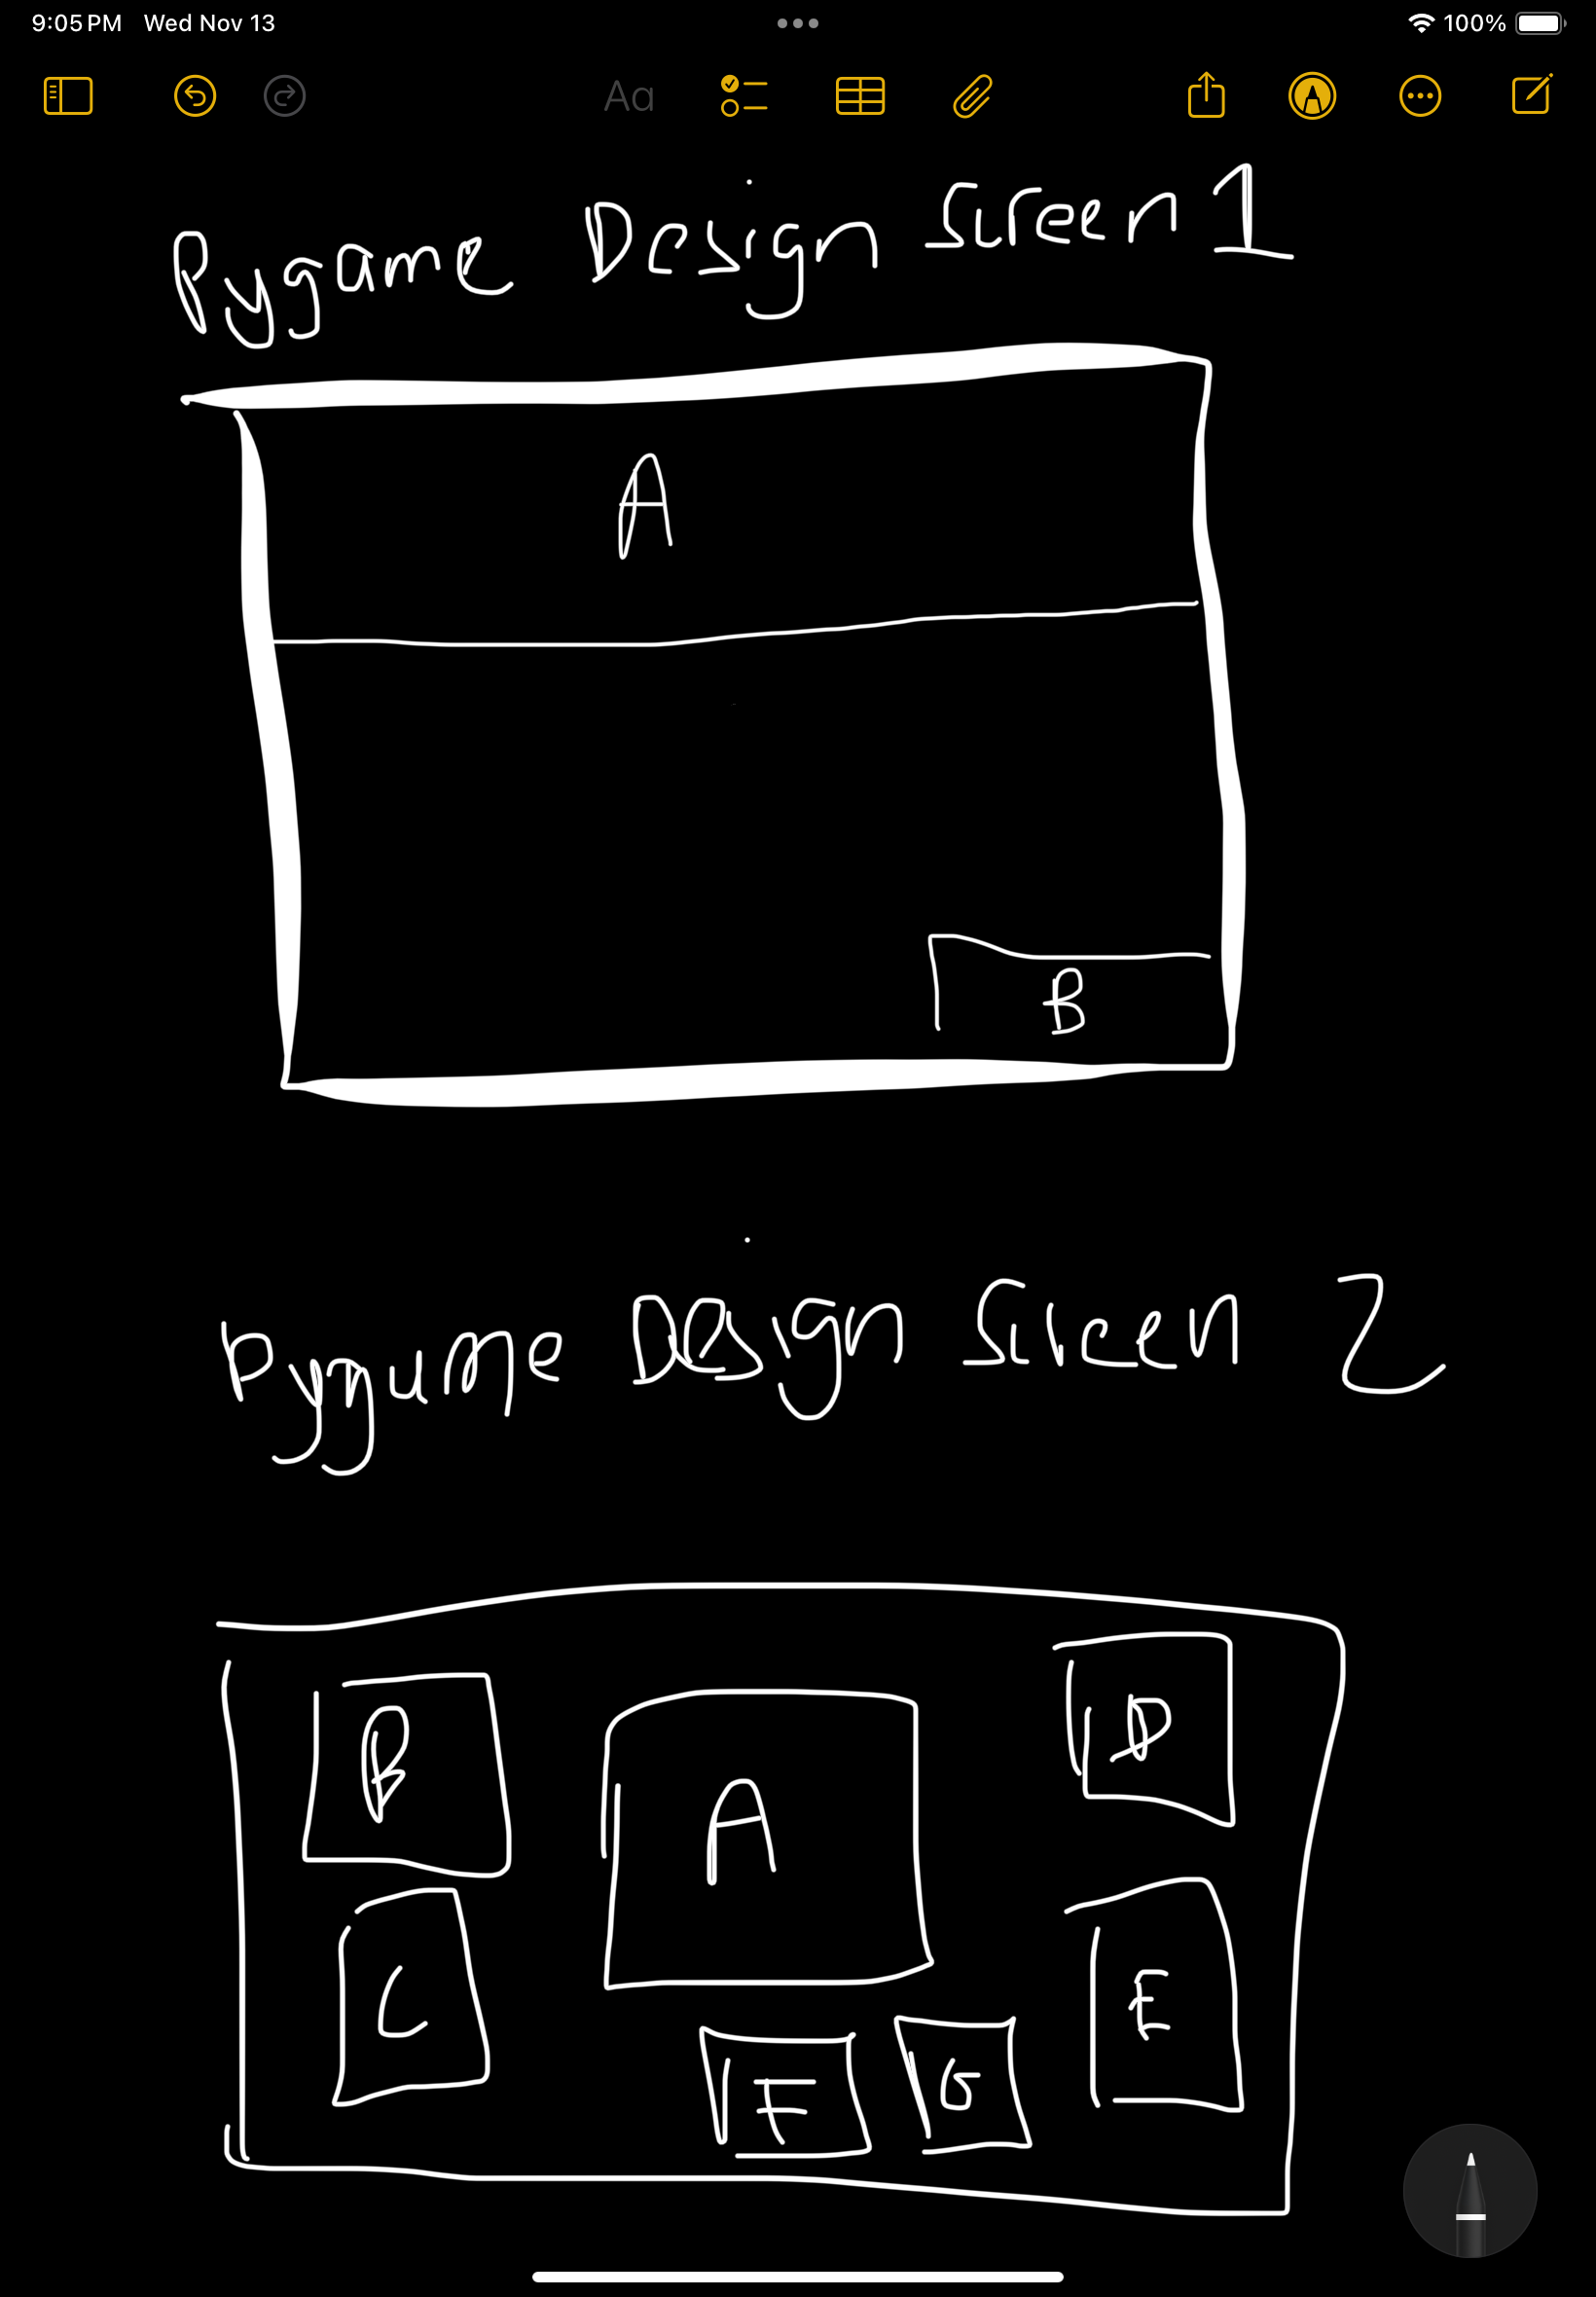 9:05 PM Wed Nov 13 100%
Aa
Pygame Design Screen 1
A
B
Pygame Design Screen 2
B A D
C E
F G